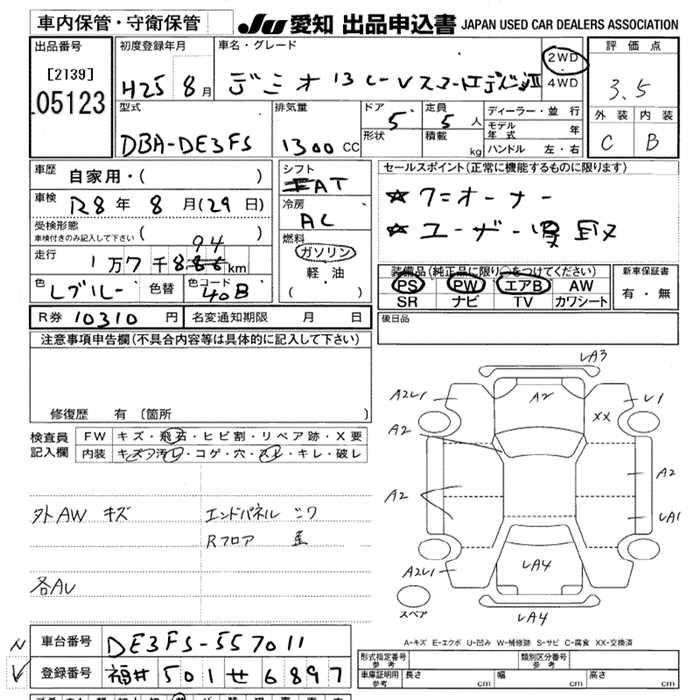 車内保管・守衛保管
JU 愛知 出品申込書 JAPAN USED CAR DEALERS ASSOCIATION
出品番号
[2139]
05123
初度登録年月
H25 8月
車名・グレード
デミオ 13C-Vスマートエディション II
2WD
4WD
評価点
3.5
外装 内装
C B
型式
DBA-DE3FS
排気量
1300 CC
ドア 5
形状
定員 5 人
積載 kg
ディーラー・並行
モデル年式 年
ハンドル 左・右
車歴 自家用・( )
車検 R8年 8月(29日)
受検形態
車検付きのみ記入して下さい ( )
94
走行 1万7千886km
色 Lブルー 色替 色コード 40B
シフト
FAT
冷房
AC
燃料
ガソリン
軽油
( ・ )
セールスポイント(正常に機能するものに限ります)
☆ワンオーナー
☆ユーザー買取
装備品(純正品に限り○をつけてください)
PS PW エアB AW
SR ナビ TV カワシート
新車保証書
有・無
R券 10310 円 名変通知期限 月 日
後日品
注意事項申告欄(不具合内容等は具体的に記入して下さい)
修復歴 有 (箇所 )
検査員記入欄
FW キズ・飛石・ヒビ割・リペア跡・X要
内装 キズ・汚レ・コゲ・穴・スレ・キレ・破レ
外AW キズ
エンドパネル ニワ
Rフロア
各AU
UA3
A2U1
A2
U1
XX
A2
A2
A2
UA1
A2U1
UA4
UA4
スペア
A-キズ E-エクボ U-凹み W-補修跡 S-サビ C-腐食 XX-交換済
車台番号 DE3FS-557011
登録番号 福井 501 せ 6897
形式指定番号 参考
類別区分番号 参考
車庫証明用 参考
長さ cm 幅 cm 高さ cm